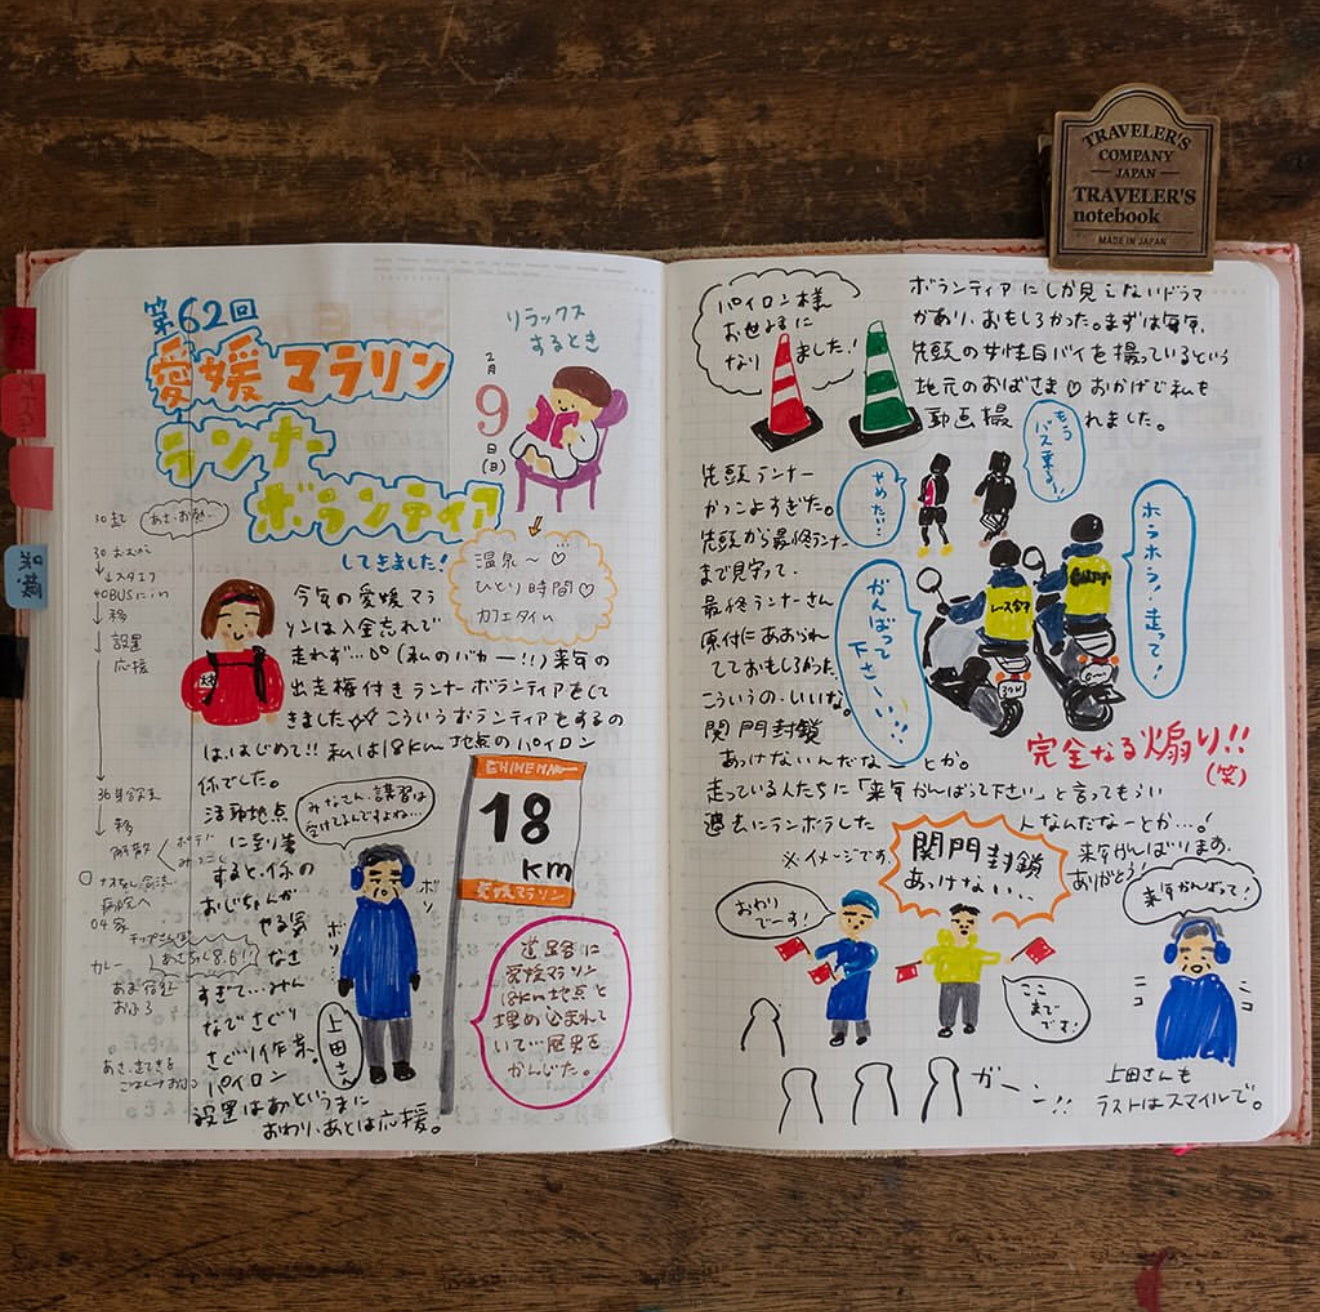 TRAVELER'S
COMPANY
JAPAN
TRAVELER'S
notebook
MADE IN JAPAN
第62回
愛媛マラソン
ランナー
ボランティア
してきました!
リラックス
するとき
2月
9
日
(日)
温泉〜♡
ひとり時間♡
カフェタイム
30起
30 おむかえ
スタエフ
40BUSにin
移
設置
応援
移
解散
04 家
カレー
おふろ
今年の愛媛マラ
ソンは入金忘れで
走れず…(私のバカー!!)来年の
出走権付きランナーボランティアをして
きました☆☆こういうボランティアをするの
は、はじめて!!私は18km地点のパイロン
係でした。
活動地点
に到着
すると、係の
おじちゃんが
やる気
なさ
すぎて…みん
なでさぐり
さぐり作業。
パイロン
設置はあというまに
おわり、あとは応援。
みなさん、講習は
受けてるんですよね…
ボソ
ボソ
上田さん
EHIME MA
18
km
愛媛マラソン
道路に
愛媛マラソン
18km地点と
埋め込まれて
いて…歴史を
かんじた。
パイロン様
お世話に
なりました!
ボランティアにしか見えないドラマ
があり、おもしろかった。まずは毎年、
先頭の女性白バイを撮っているという
地元のおばさま♡おかげで私も
動画撮れました。
先頭ランナー
かっこよすぎた。
先頭から最終ランナー
まで見守って、
最終ランナーさん
原付にあおられ
てておもしろかった
こういうの、いいな。
関門封鎖
あっけないんだなーとか。
やめたい…
もう
バス乗る!!
がんばって
下さーい!!
ホラホラ!走って!
レース
完全なる煽り!!
(笑)
走っている人たちに「来年がんばって下さい」と言ってもらい
過去にランボラした人なんだなーとか…!
来年がんばります。
ありがとう!
※イメージです。
関門封鎖
あっけない…
おわり
でーす!
ここ
まで
です!
来年がんばって!
ニコ
ニコ
ガーーン!!
上田さんも
ラストはスマイルで。